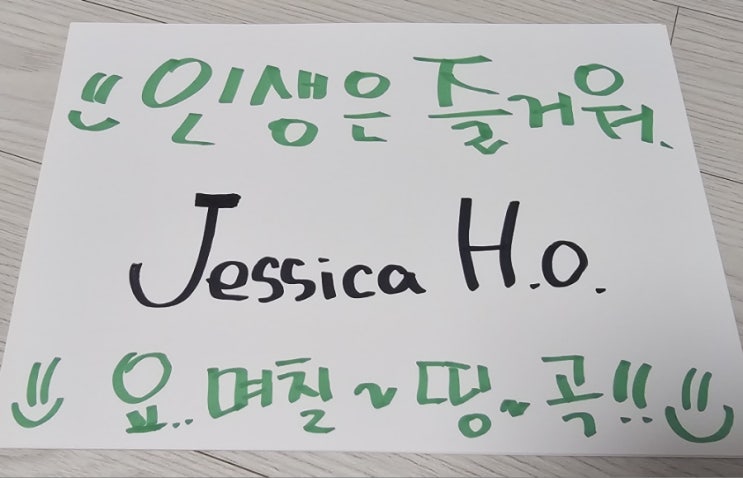 인생은 즐거워.
Jessica H.O.
요.. 며칠~ 띵~ 곡!!